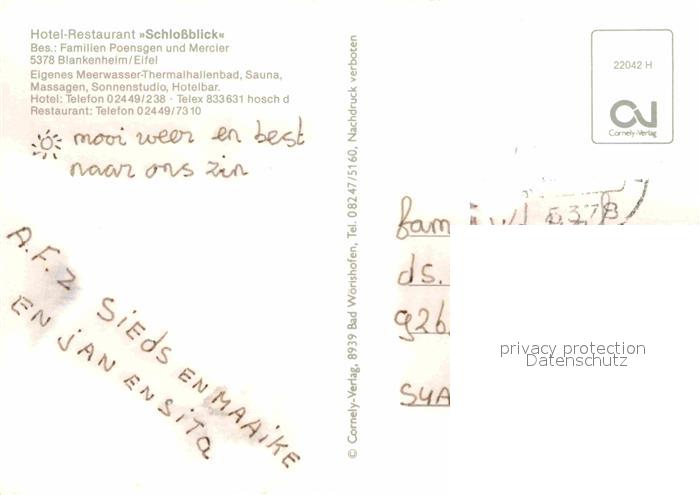 Hotel-Restaurant »Schloßblick«
Bes.: Familien Poensgen und Mercier
5378 Blankenheim/Eifel
Eigenes Meerwasser-Thermalhallenbad, Sauna,
Massagen, Sonnenstudio, Hotelbar.
Hotel: Telefon 02449/238 · Telex 833631 hosch d
Restaurant: Telefon 02449/7310
mooi weer en best
naar ons zin
A.F.Z SiEdS EN MAAiKE
EN jAN EN SiTa
© Cornely-Verlag, 8939 Bad Wörishofen, Tel. 08247/5160, Nachdruck verboten
22042 H
Cornely-Verlag
5378
fam
ds.
926
SUA
privacy protection
Datenschutz